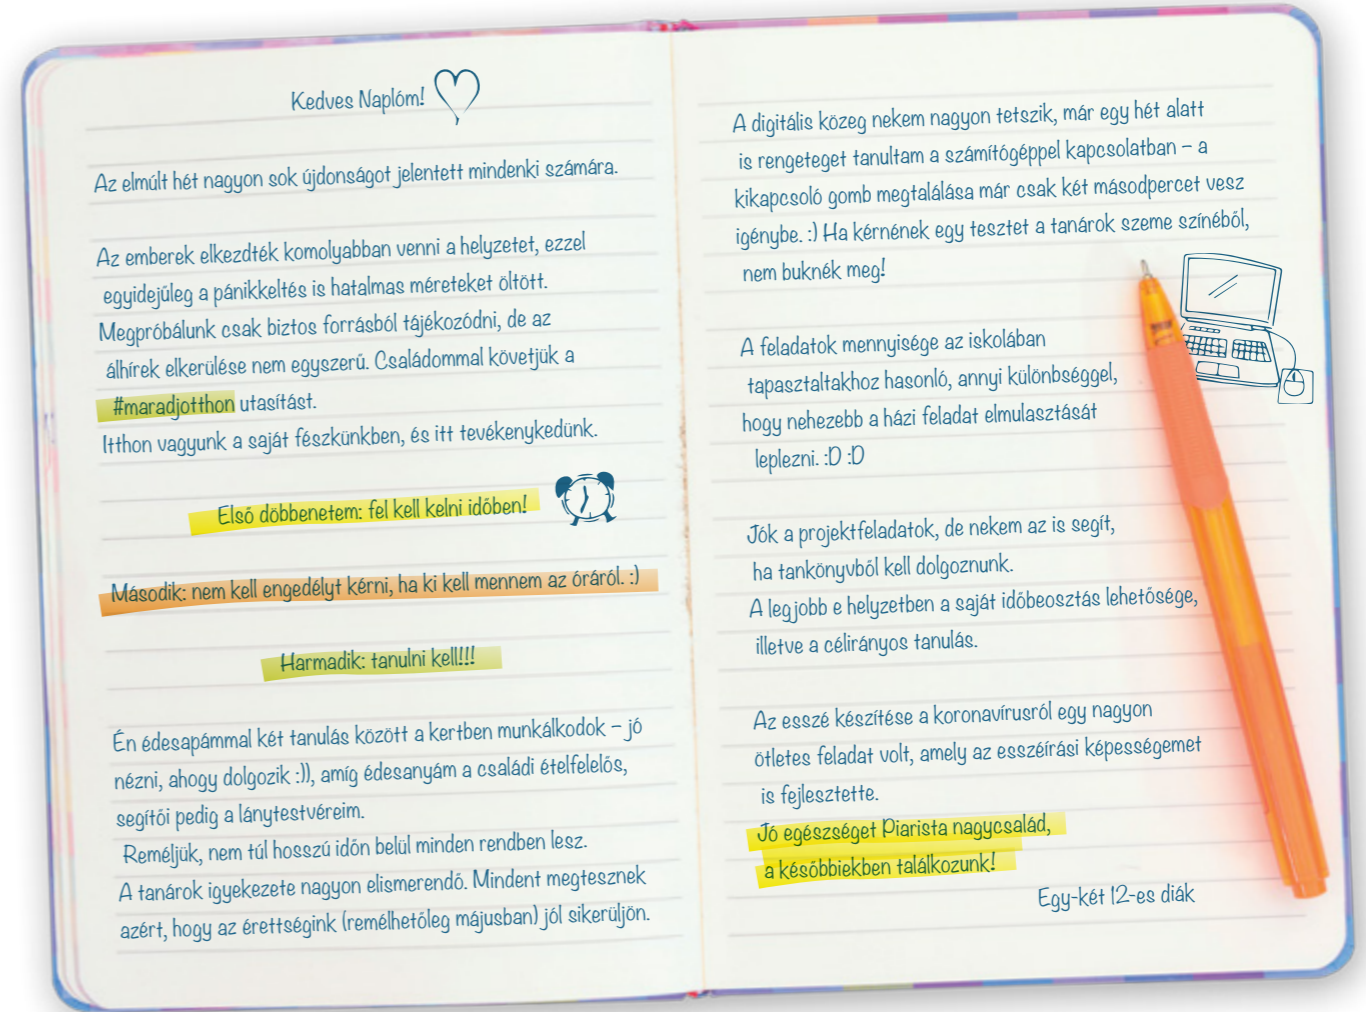 Kedves Naplóm!
Az elmúlt hét nagyon sok újdonságot jelentett mindenki számára.
Az emberek elkezdték komolyabban venni a helyzetet, ezzel
egyidejűleg a pánikkeltés is hatalmas méreteket öltött.
Megpróbálunk csak biztos forrásból tájékozódni, de az
álhírek elkerülése nem egyszerű. Családommal követjük a
#maradjotthon utasítást.
Itthon vagyunk a saját fészkünkben, és itt tevékenykedünk.
Első döbbenetem: fel kell kelni időben!
Második: nem kell engedélyt kérni, ha ki kell mennem az óráról. :)
Harmadik: tanulni kell!!!
Én édesapámmal két tanulás között a kertben munkálkodok – jó
nézni, ahogy dolgozik :)), amíg édesanyám a családi ételfelelős,
segítői pedig a lánytestvéreim.
Reméljük, nem túl hosszú időn belül minden rendben lesz.
A tanárok igyekezete nagyon elismerendő. Mindent megtesznek
azért, hogy az érettségink (remélhetőleg májusban) jól sikerüljön.
A digitális közeg nekem nagyon tetszik, már egy hét alatt
is rengeteget tanultam a számítógéppel kapcsolatban – a
kikapcsoló gomb megtalálása már csak két másodpercet vesz
igénybe. :) Ha kérnének egy tesztet a tanárok szeme színéből,
nem buknék meg!
A feladatok mennyisége az iskolában
tapasztaltakhoz hasonló, annyi különbséggel,
hogy nehezebb a házi feladat elmulasztását
leplezni. :D :D
Jók a projektfeladatok, de nekem az is segít,
ha tankönyvből kell dolgoznunk.
A legjobb e helyzetben a saját időbeosztás lehetősége,
illetve a célirányos tanulás.
Az esszé készítése a koronavírusról egy nagyon
ötletes feladat volt, amely az esszéírási képességemet
is fejlesztette.
Jó egészséget Piarista nagycsalád,
a későbbiekben találkozunk!
Egy-két 12-es diák